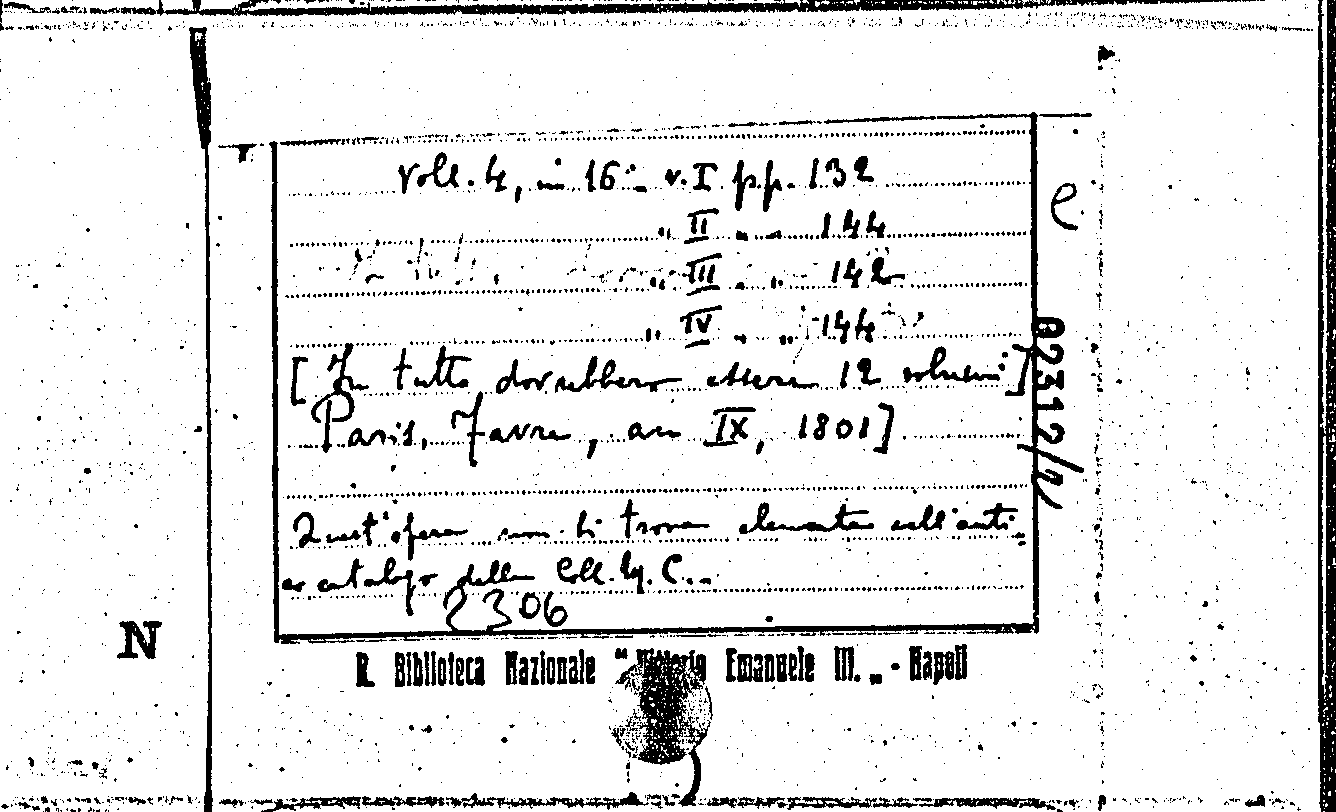 Voll. 4, in 16° - v. I pp. 132
" II " " 144
" III " " 142
" IV " " 144
[In tutto dovrebbero essere 12 volumi]
Paris, Favre, an IX, 1801]
Quest'opera non si trova elencata nell'anti-
co catalogo della Coll. C..
2306
R. Biblioteca Nazionale "Vittorio Emanuele III. „ - Napoli
N
e
02312/2